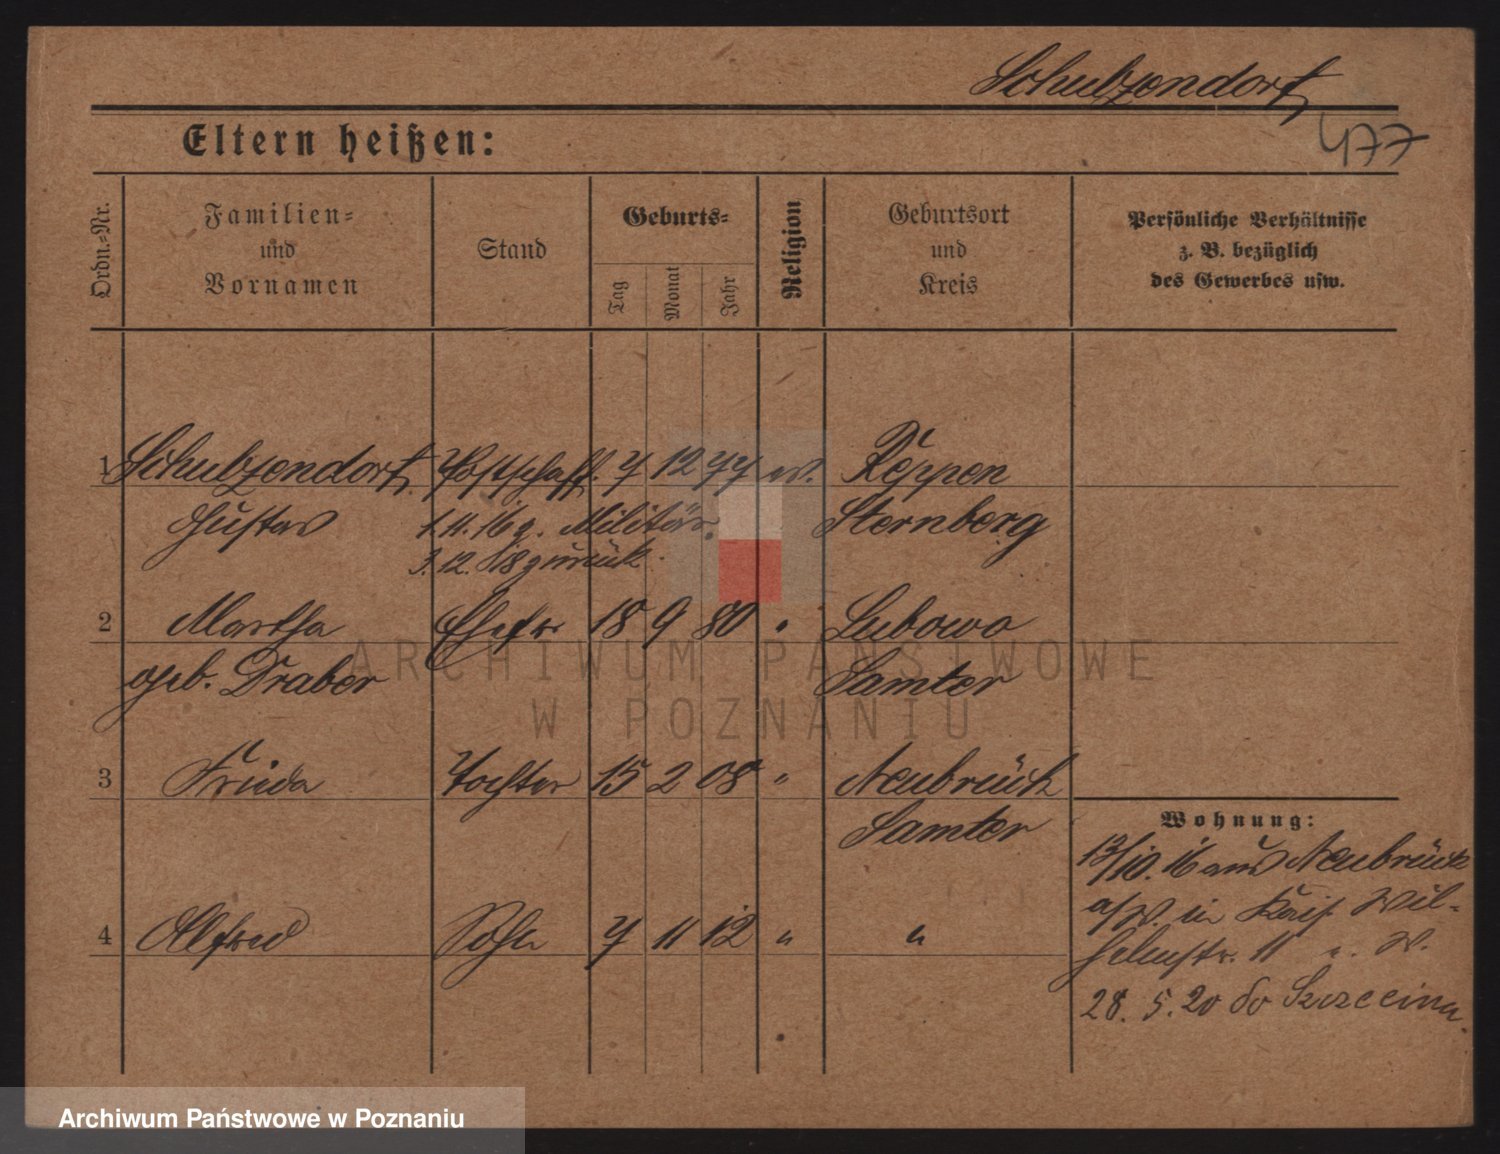 Schulzendorf
477
Eltern heißen:
Ordn.-Nr.
Familien-
und
Vornamen
Stand
Geburts-
Tag
Monat
Jahr
Religion
Geburtsort
und
Kreis
Persönliche Verhältnisse
z. B. bezüglich
des Gewerbes usw.
1 Schulzendorf Postschaff. 7 12 77 ev. Reppen
Gustav 1.11.16 z. Militär Sternberg
3.12.18 zurück.
2 Martha Ehefr 18 9 80 " Lubowo
geb. Draber Samter
3 Frieda Tochter 15 2 08 " Neubrück
Samter
4 Alfred Sohn 7 11 12 " "
Wohnung:
13/10.16 aus Neubrück
a/W. in Kais. Wil-
helmstr. 11
28. 5. 20 do Szczecina.
ARCHIWUM PAŃSTWOWE
W POZNANIU
Archiwum Państwowe w Poznaniu